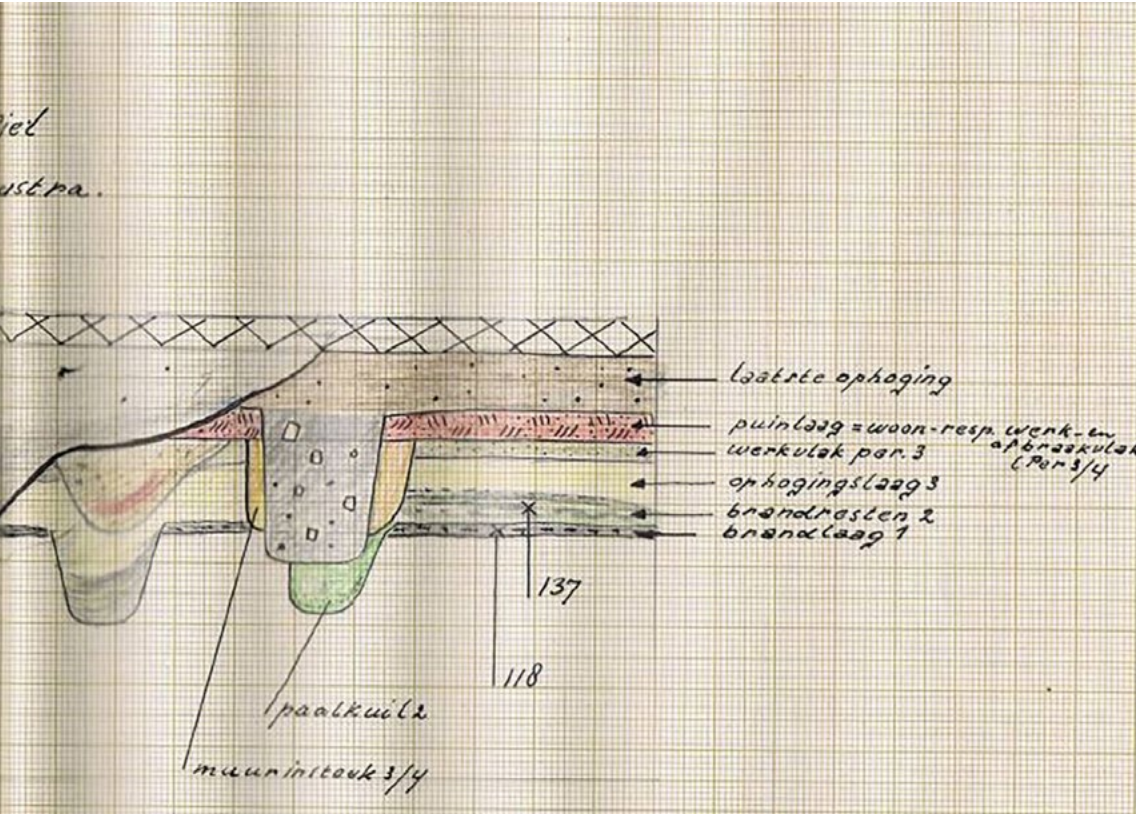 laatste ophoging
puinlaag = woon-resp. werk-en
afbraakvlak
(Per 3/4
werkvlak per. 3
ophogingslaag 3
brandresten 2
brandlaag 1
137
118
paalkuil 2
muurinsteek 3/4